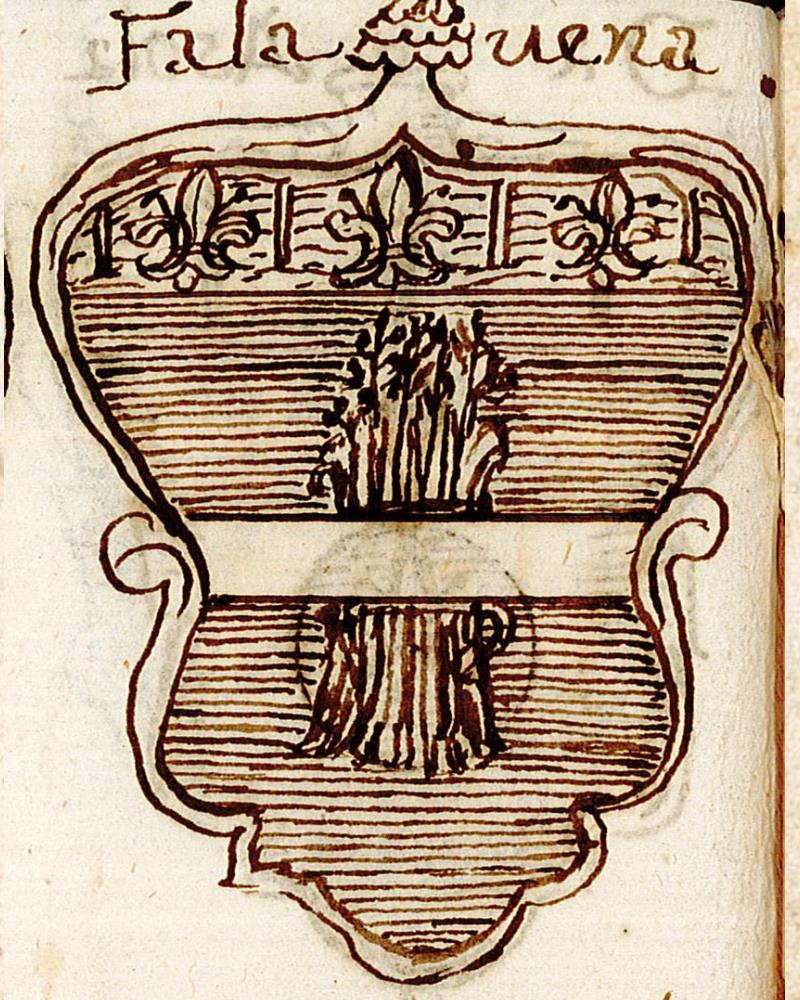 Fala uena